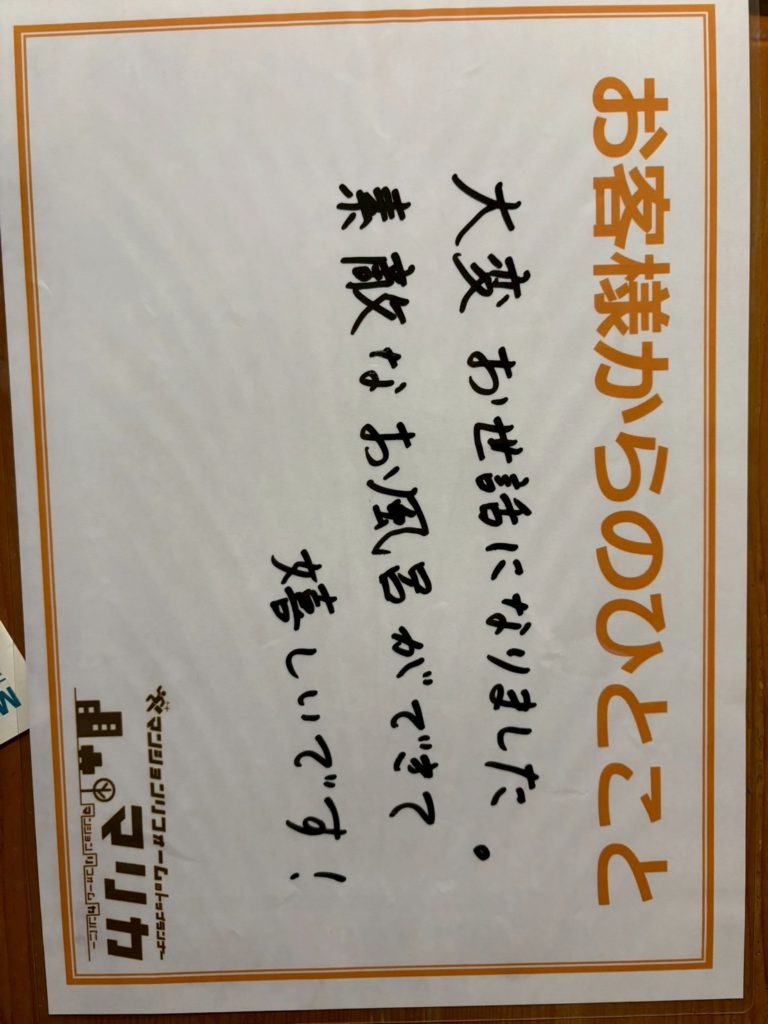 お客様からのひとこと
大変お世話になりました。
素敵なお風呂ができて
嬉しいです!
マンションリフォームのトップランナー
マリカ
マンションリフォームカンパニー